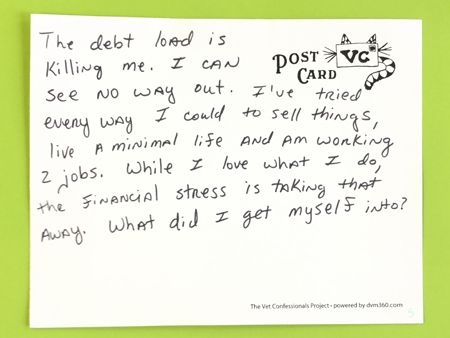 The debt load is
killing me. I can
see no way out. I've tried
every way I could to sell things,
live a minimal life and am working
2 jobs. While I love what I do,
the financial stress is taking that
away. What did I get myself into?
POST CARD
VC
The Vet Confessionals Project • powered by dvm360.com
5